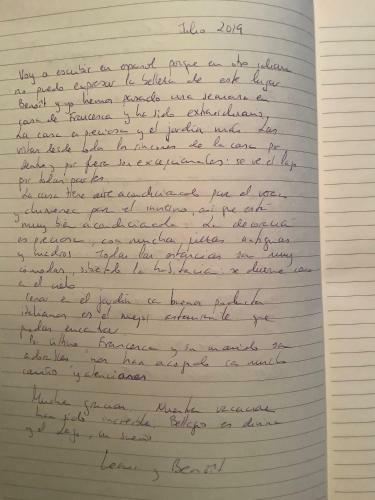 Julio 2019
Voy a escribir en español porque en otro idioma
no puedo expresar la belleza de este lugar
Benoît y yo hemos pasado una semana en
casa de Francesca y ha sido extraordinario
La casa es preciosa y el jardín más. Las
vistas desde todos los rincones de la casa por
dentro y por fuera son excepcionales: se ve el lago
por todas partes.
La casa tiene aire acondicionado para el verano
y chimenea para el invierno, así que está
muy bien acondicionada. La decoración
es preciosa, con muchas piezas antiguas
y Todas las estancias son muy
cómodas, sobretodo la habitación: se duerme como
en el cielo
Cenar en el jardín con buenos productos
italianos es el mejor que
puedas encontrar
Por último Francesca y su marido son
adorables nos han acogido con mucho
cariño y atenciones
Muchas gracias. Nuestras vacaciones
han sido increíbles. Bellagio es divino
y el Lago, un sueño
y Benoît